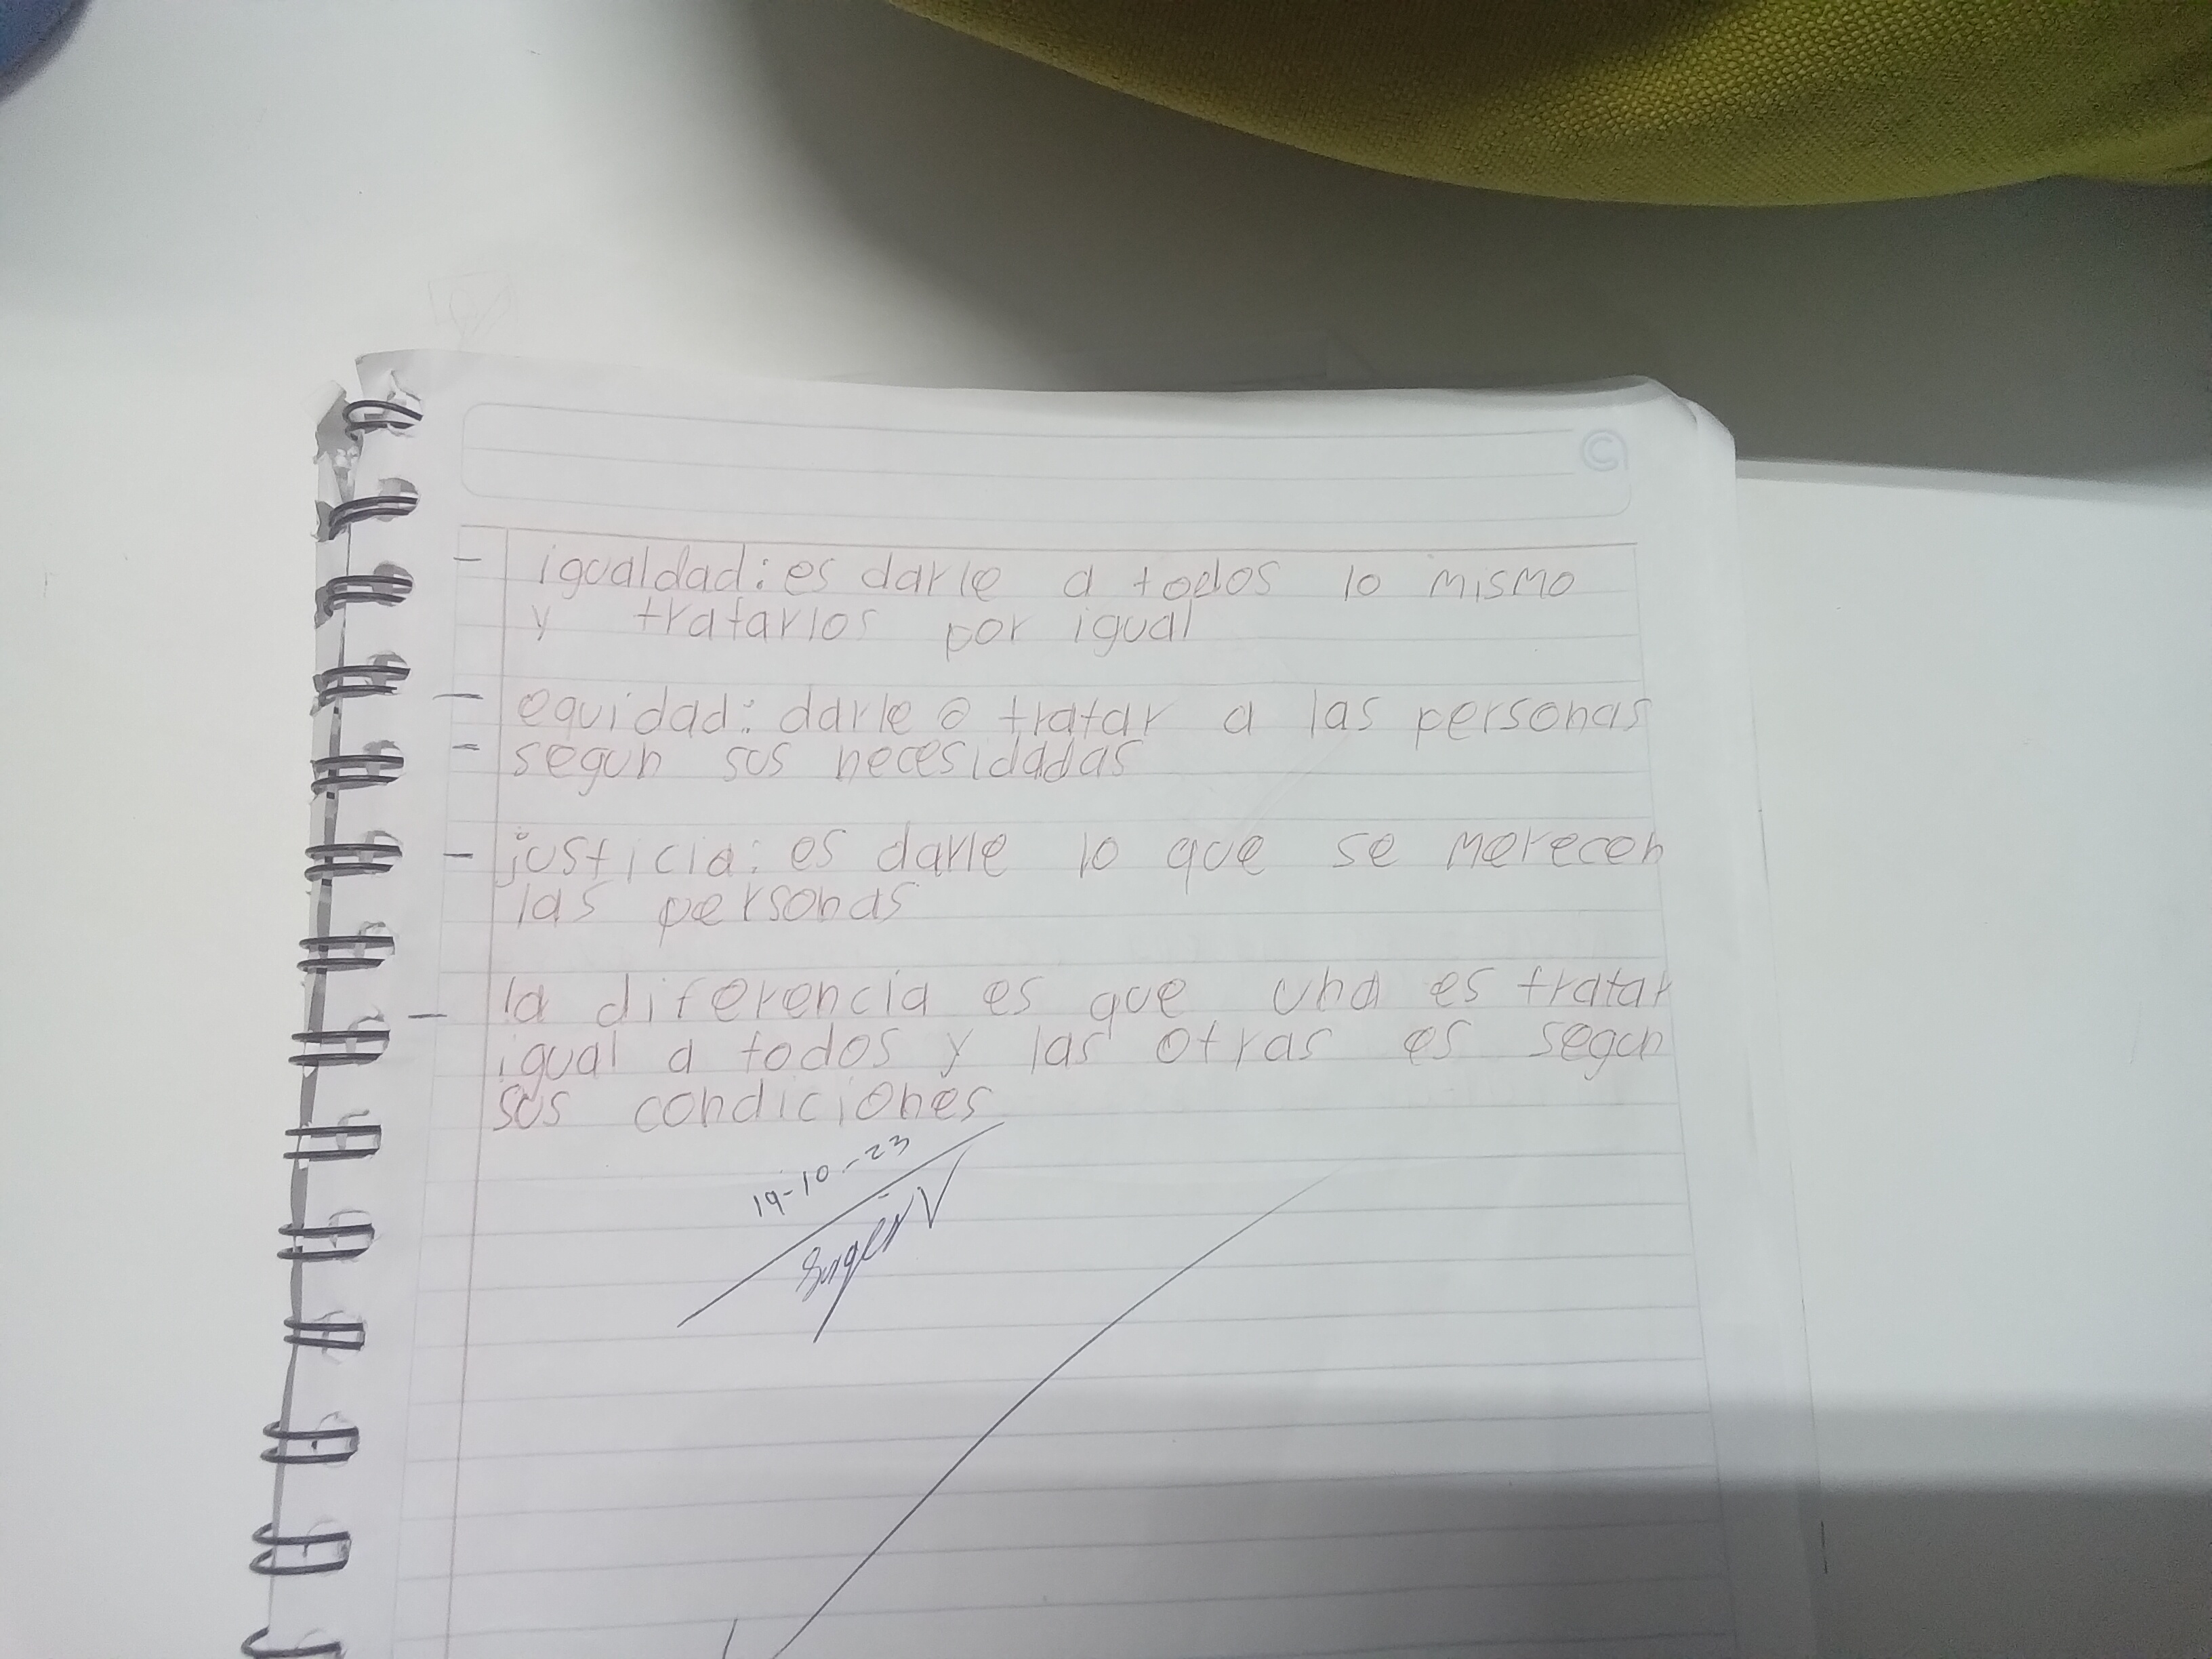 - igualdad: es darle a todos lo mismo
y tratarlos por igual
- equidad: darle o tratar a las personas
- segun sus necesidadas
- justicia: es darle lo que se merecen
las personas
- la diferencia es que una es tratar
igual a todos y las otras es segun
sus condiciones
19-10-23